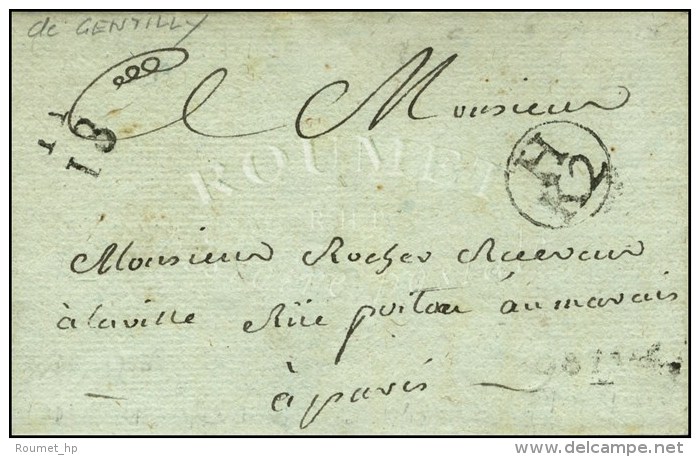 de GENTILLY
Monsieur
18
H
K2
ROUMET
RUE
Monsieur Rocher Receveur
à laville Rüe poitou au marais
à paris
Roumet_hp
www.delcampe.net